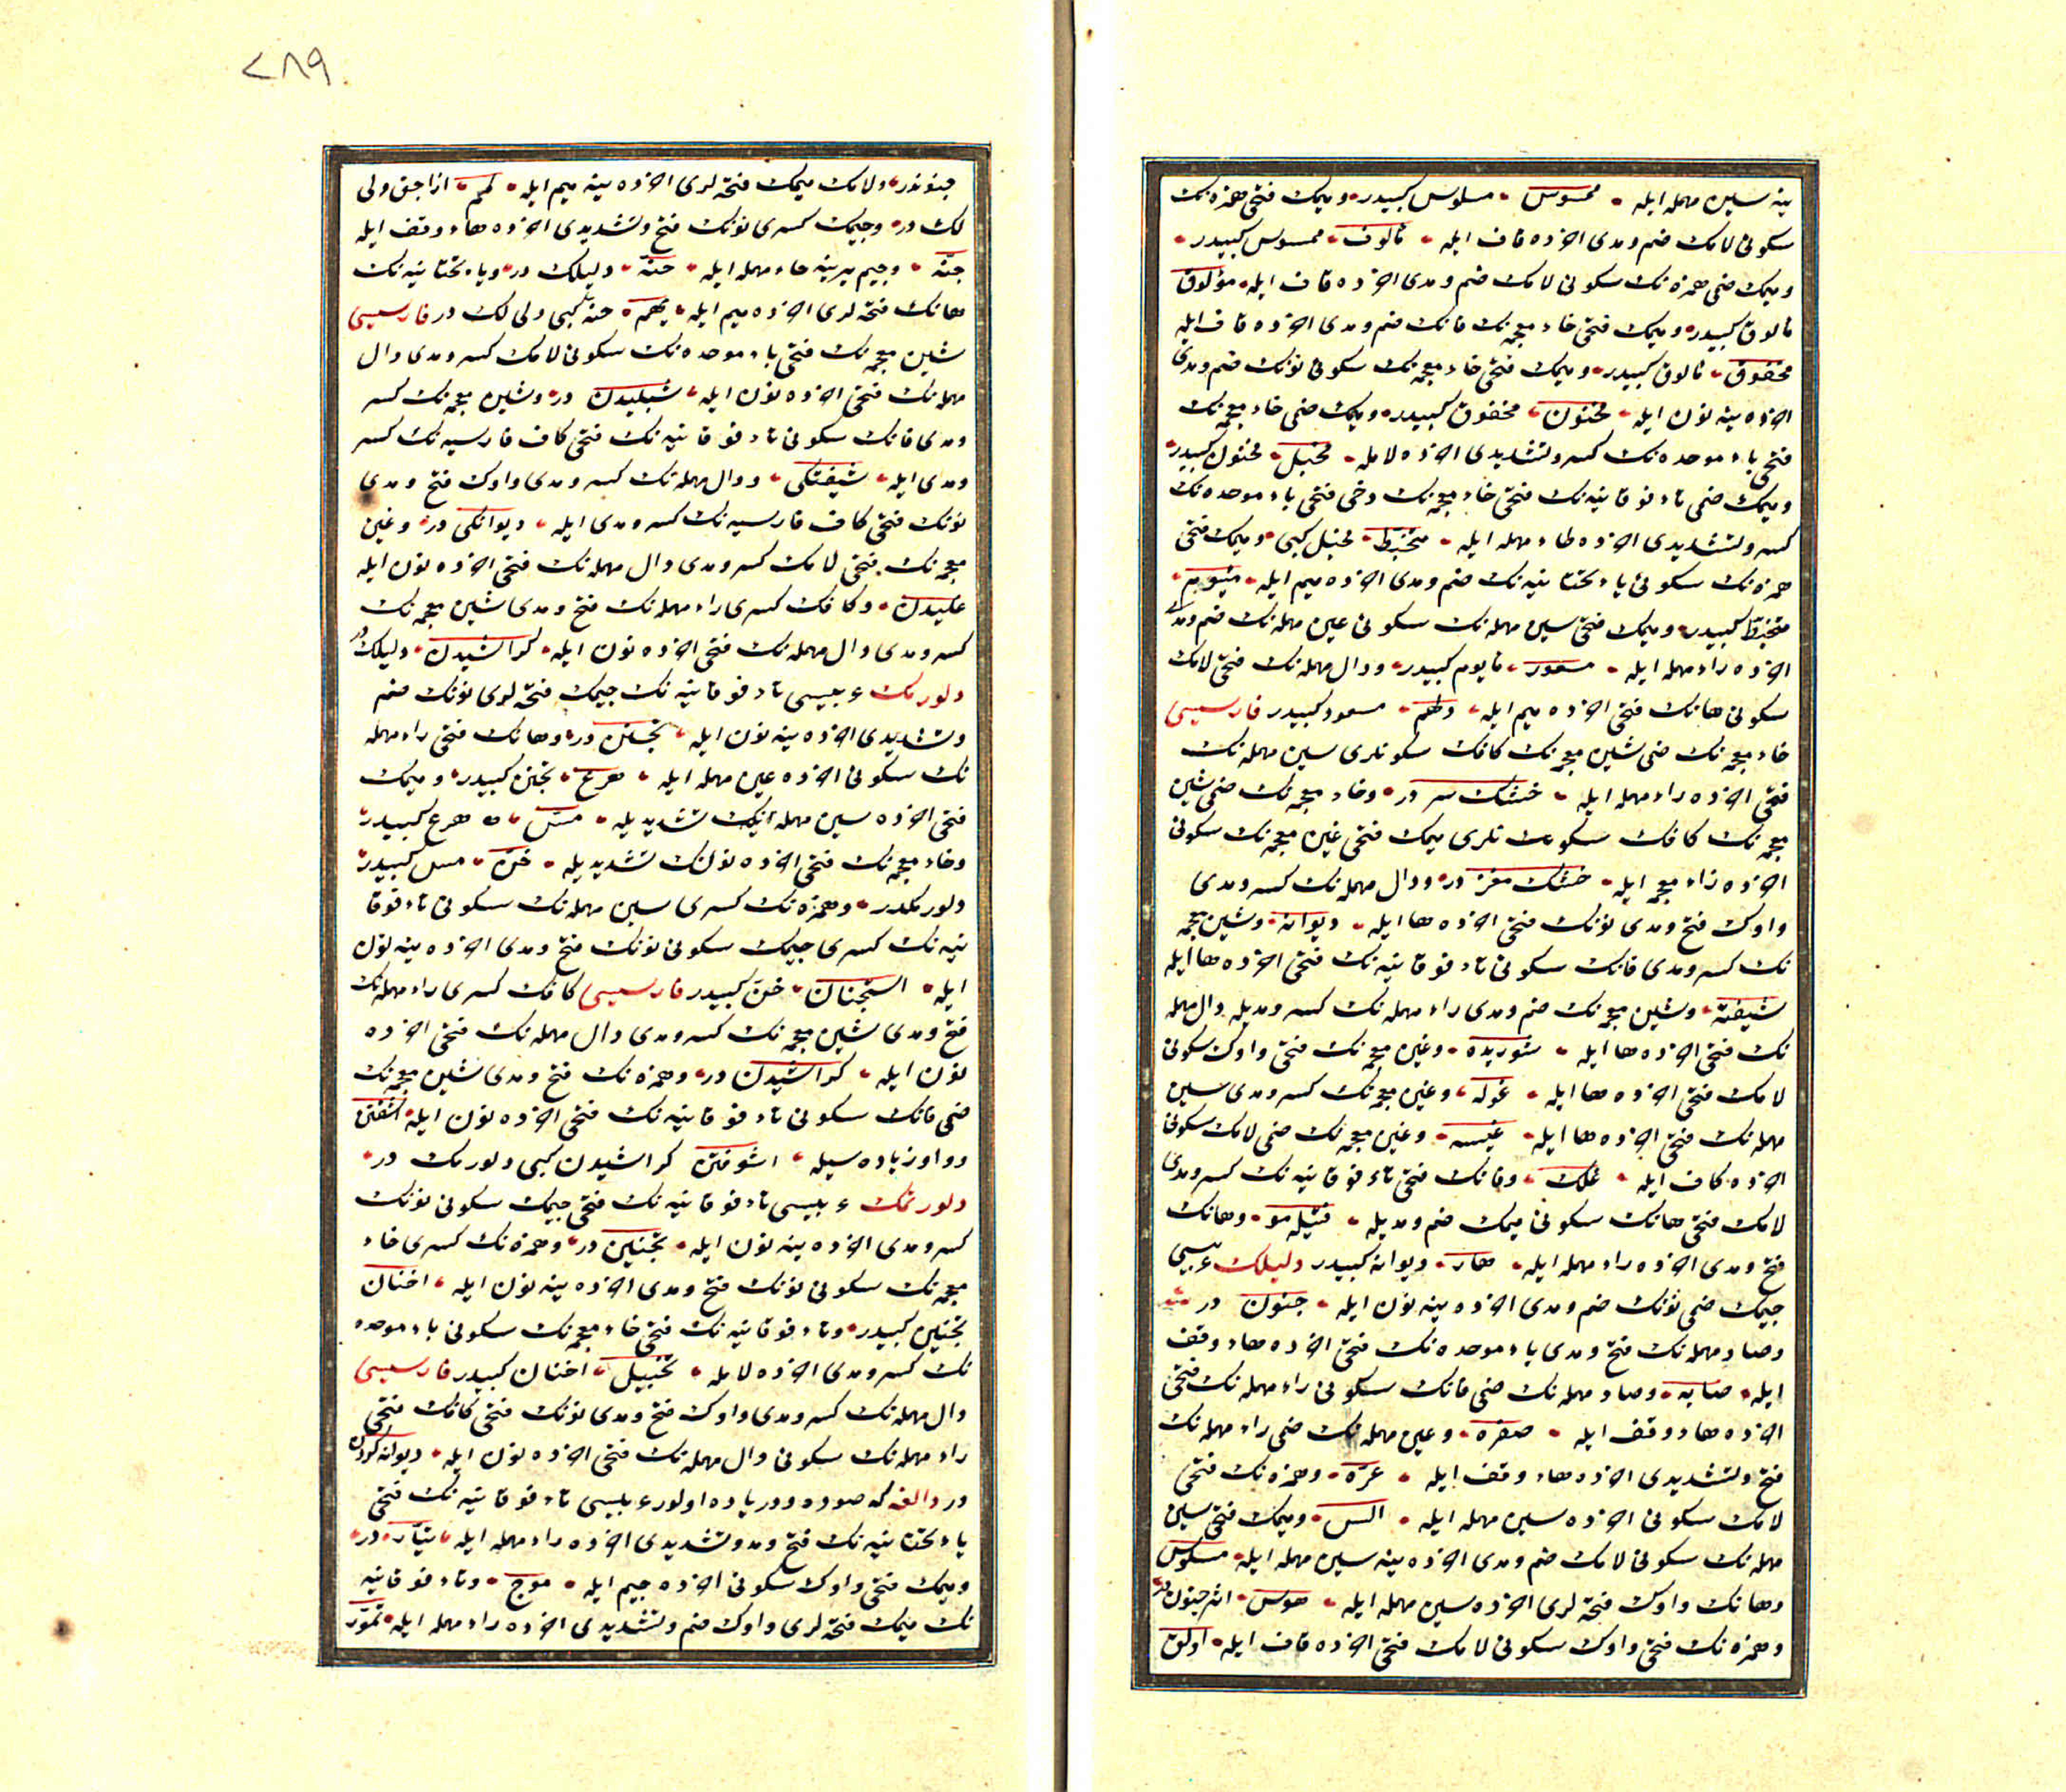 ینه سین مهمله ایله ممسوس مسلوس کبیدر ومیمک فتحی همزه نک
سکونی لامک ضم ومدی اخرده قاف ایله مألوق ممسوس کبیدر
ومیمک ضمی همزه نک سکونی لامک ضم ومدی اخرده قاف ایله مؤلوق
مالوق کبیدر ومیمک فتحی خاء معجمه نک فانک ضم ومدی اخرده قاف ایله
مخفوق مالوق کبیدر ومیمک فتحی خاء معجمه نک سکونی نونک ضم ومدی
اخرده ینه نون ایله مخنون مخفوق کبیدر ومیمک ضمی خاء معجمه نک
فتحی باء موحده نک کسر وتشدیدی اخرده لامله مخبل مخنون کبیدر
ومیمک ضمی تاء فوقانیه نک فتحی خاء معجمه نک دخی فتحی باء موحده نک
کسر وتشدیدی اخرده طاء مهمله ایله متخبط مخبل کبی ومیمک فتحی
همزه نک سکونی یاء تحتانیه نک ضم ومدی اخرده میم ایله میئوم
متخبط کبیدر ومیمک فتحی سین مهمله نک سکونی عین مهمله نک ضم ومدی
اخرده راء مهمله ایله مسعور مایوم کبیدر ودال مهمله نک فتحی لامک
سکونی هانک فتحی اخرده میم ایله دلهم مسعور کبیدر فارسیسی
خاء معجمه نک ضمی شین معجمه نک کافک سکونلری سین مهمله نک
فتحی اخرده راء مهمله ایله خشک سر در وخاء معجمه نک ضمی شین
معجمه نک کافک سکونلری میمک فتحی غین معجمه نک سکونی
اخرده زاء معجمه ایله خشک مغز در ودال مهمله نک کسر ومدی
واوک فتح ومدی نونک فتحی اخرده ها ایله دیوانه وشین معجمه
نک کسر ومدی فانک سکونی تاء فوقانیه نک فتحی اخرده ها ایله
شیفته وشین معجمه نک ضم ومدی راء مهمله نک کسر ومدیله دال مهمله
نک فتحی اخرده ها ایله شوریده وغین معجمه نک فتحی واوک سکونی
لامک فتحی اخرده ها ایله غوله وغین معجمه نک کسر ومدی سین
مهمله نک فتحی اخرده ها ایله غیسه وغین معجمه نک ضمی لامک سکونی
اخرده کاف ایله غلک وفانک فتحی تاء فوقانیه نک کسر ومدی
لامک فتحی هانک سکونی میمک ضم ومدیله فتیله مو وهانک
فتح ومدی اخرده راء مهمله ایله هار دیوانه کبیدر دلیلک عربیسی
جیمک ضمی نونک ضم ومدی اخرده ینه نون ایله جنون در
وصاد مهمله نک فتح ومدی باء موحده نک فتحی اخرده هاء وقف
ایله صابه وصاد مهمله نک ضمی فانک سکونی راء مهمله نک فتحی
اخرده هاء وقف ایله صفره وعین مهمله نک ضمی راء مهمله نک
فتح وتشدیدی اخرده هاء وقف ایله عره وهمزه نک فتحی
لامک سکونی اخرده سین مهمله ایله الس ومیمک فتحی سین
مهمله نک سکونی لامک ضم ومدی اخرده ینه سین مهمله ایله مسلوس
وهانک واوک فتحه لری اخرده سین مهمله ایله هوس اثر جنون در
وهمزه نک فتحی واوک سکونی لامک فتحی اخرده قاف ایله اولق
٢٨٩
جنوندر ولامک میمک فتحه لری اخرده ینه میم ایله لمم ازاجق دلی
لک در وجیمک کسری نونک فتح وتشدیدی اخرده هاء وقف ایله
جنه وجیم یرینه حاء مهمله ایله حنه دلیلک در ویاء تحتانیه نک
هانک فتحه لری اخرده میم ایله یهم حنه کبی دلی لک در فارسیسی
شین معجمه نک فتحی باء موحده نک سکونی لامک کسر ومدی دال
مهمله نک فتحی اخرده نون ایله شبلیدن در وشین معجمه نک کسر
ومدی فانک سکونی تاء فوقانیه نک فتحی کاف فارسیه نک کسر
ومدی ایله شیفتکی ودال مهمله نک کسر ومدی واوک فتح ومدی
نونک فتحی کاف فارسیه نک کسر ومدی ایله دیوانکی در وغین
معجمه نک فتحی لامک کسر ومدی دال مهمله نک فتحی اخرده نون ایله
غلیدن وکافک کسری راء مهمله نک فتح ومدی شین معجمه نک
کسر ومدی دال مهمله نک فتحی اخرده نون ایله کراشیدن دلیلک در
دلورمک عربیسی تاء فوقانیه نک جیمک فتحه لری نونک ضم
وتشدیدی اخرده ینه نون ایله تجنن در وهانک فتحی راء مهمله
نک سکونی اخرده عین مهمله ایله هرع تجنن کبیدر ومیمک
فتحی اخرده سین مهمله نک تشدیدیله مس هرع کبیدر
وخاء معجمه نک فتحی اخرده نونک تشدیدیله خن مس کبیدر
دلورمکدر وهمزه نک کسری سین مهمله نک سکونی تاء فوقا
نیه نک کسری جیمک سکونی نونک فتح ومدی اخرده ینه نون
ایله استجنان خن کبیدر فارسیسی کافک کسری راء مهمله نک
فتح ومدی شین معجمه نک کسر ومدی دال مهمله نک فتحی اخرده
نون ایله کراشیدن در وهمزه نک فتح ومدی شین معجمه نک
ضمی فانک سکونی تاء فوقانیه نک فتحی اخرده نون ایله اشفتن
وواو زیاده سیله اشوفتن کراشیدن کبی دلورمک در
دلورتمک عربیسی تاء فوقانیه نک فتحی جیمک سکونی نونک
کسر ومدی اخرده ینه نون ایله تجنین در وهمزه نک کسری خاء
معجمه نک سکونی نونک فتح ومدی اخرده ینه نون ایله اخنان
تجنین کبیدر وتاء فوقانیه نک فتحی خاء معجمه نک سکونی باء موحده
نک کسر ومدی اخرده لامله تخبیل اخنان کبیدر فارسیسی
دال مهمله نک کسر ومدی واوک فتح ومدی نونک فتحی کافک فتحی
راء مهمله نک سکونی دال مهمله نک فتحی اخرده نون ایله دیوانه کردن
در دالغه که صوده ودریاده اولور عربیسی تاء فوقانیه نک فتحی
یاء تحتانیه نک فتح ومد وتشدیدی اخرده راء مهمله ایله تیار در
ومیمک فتحی واوک سکونی اخرده جیم ایله موج وتاء فوقانیه
نک میمک فتحه لری واوک ضم وتشدیدی اخرده راء مهمله ایله تمور